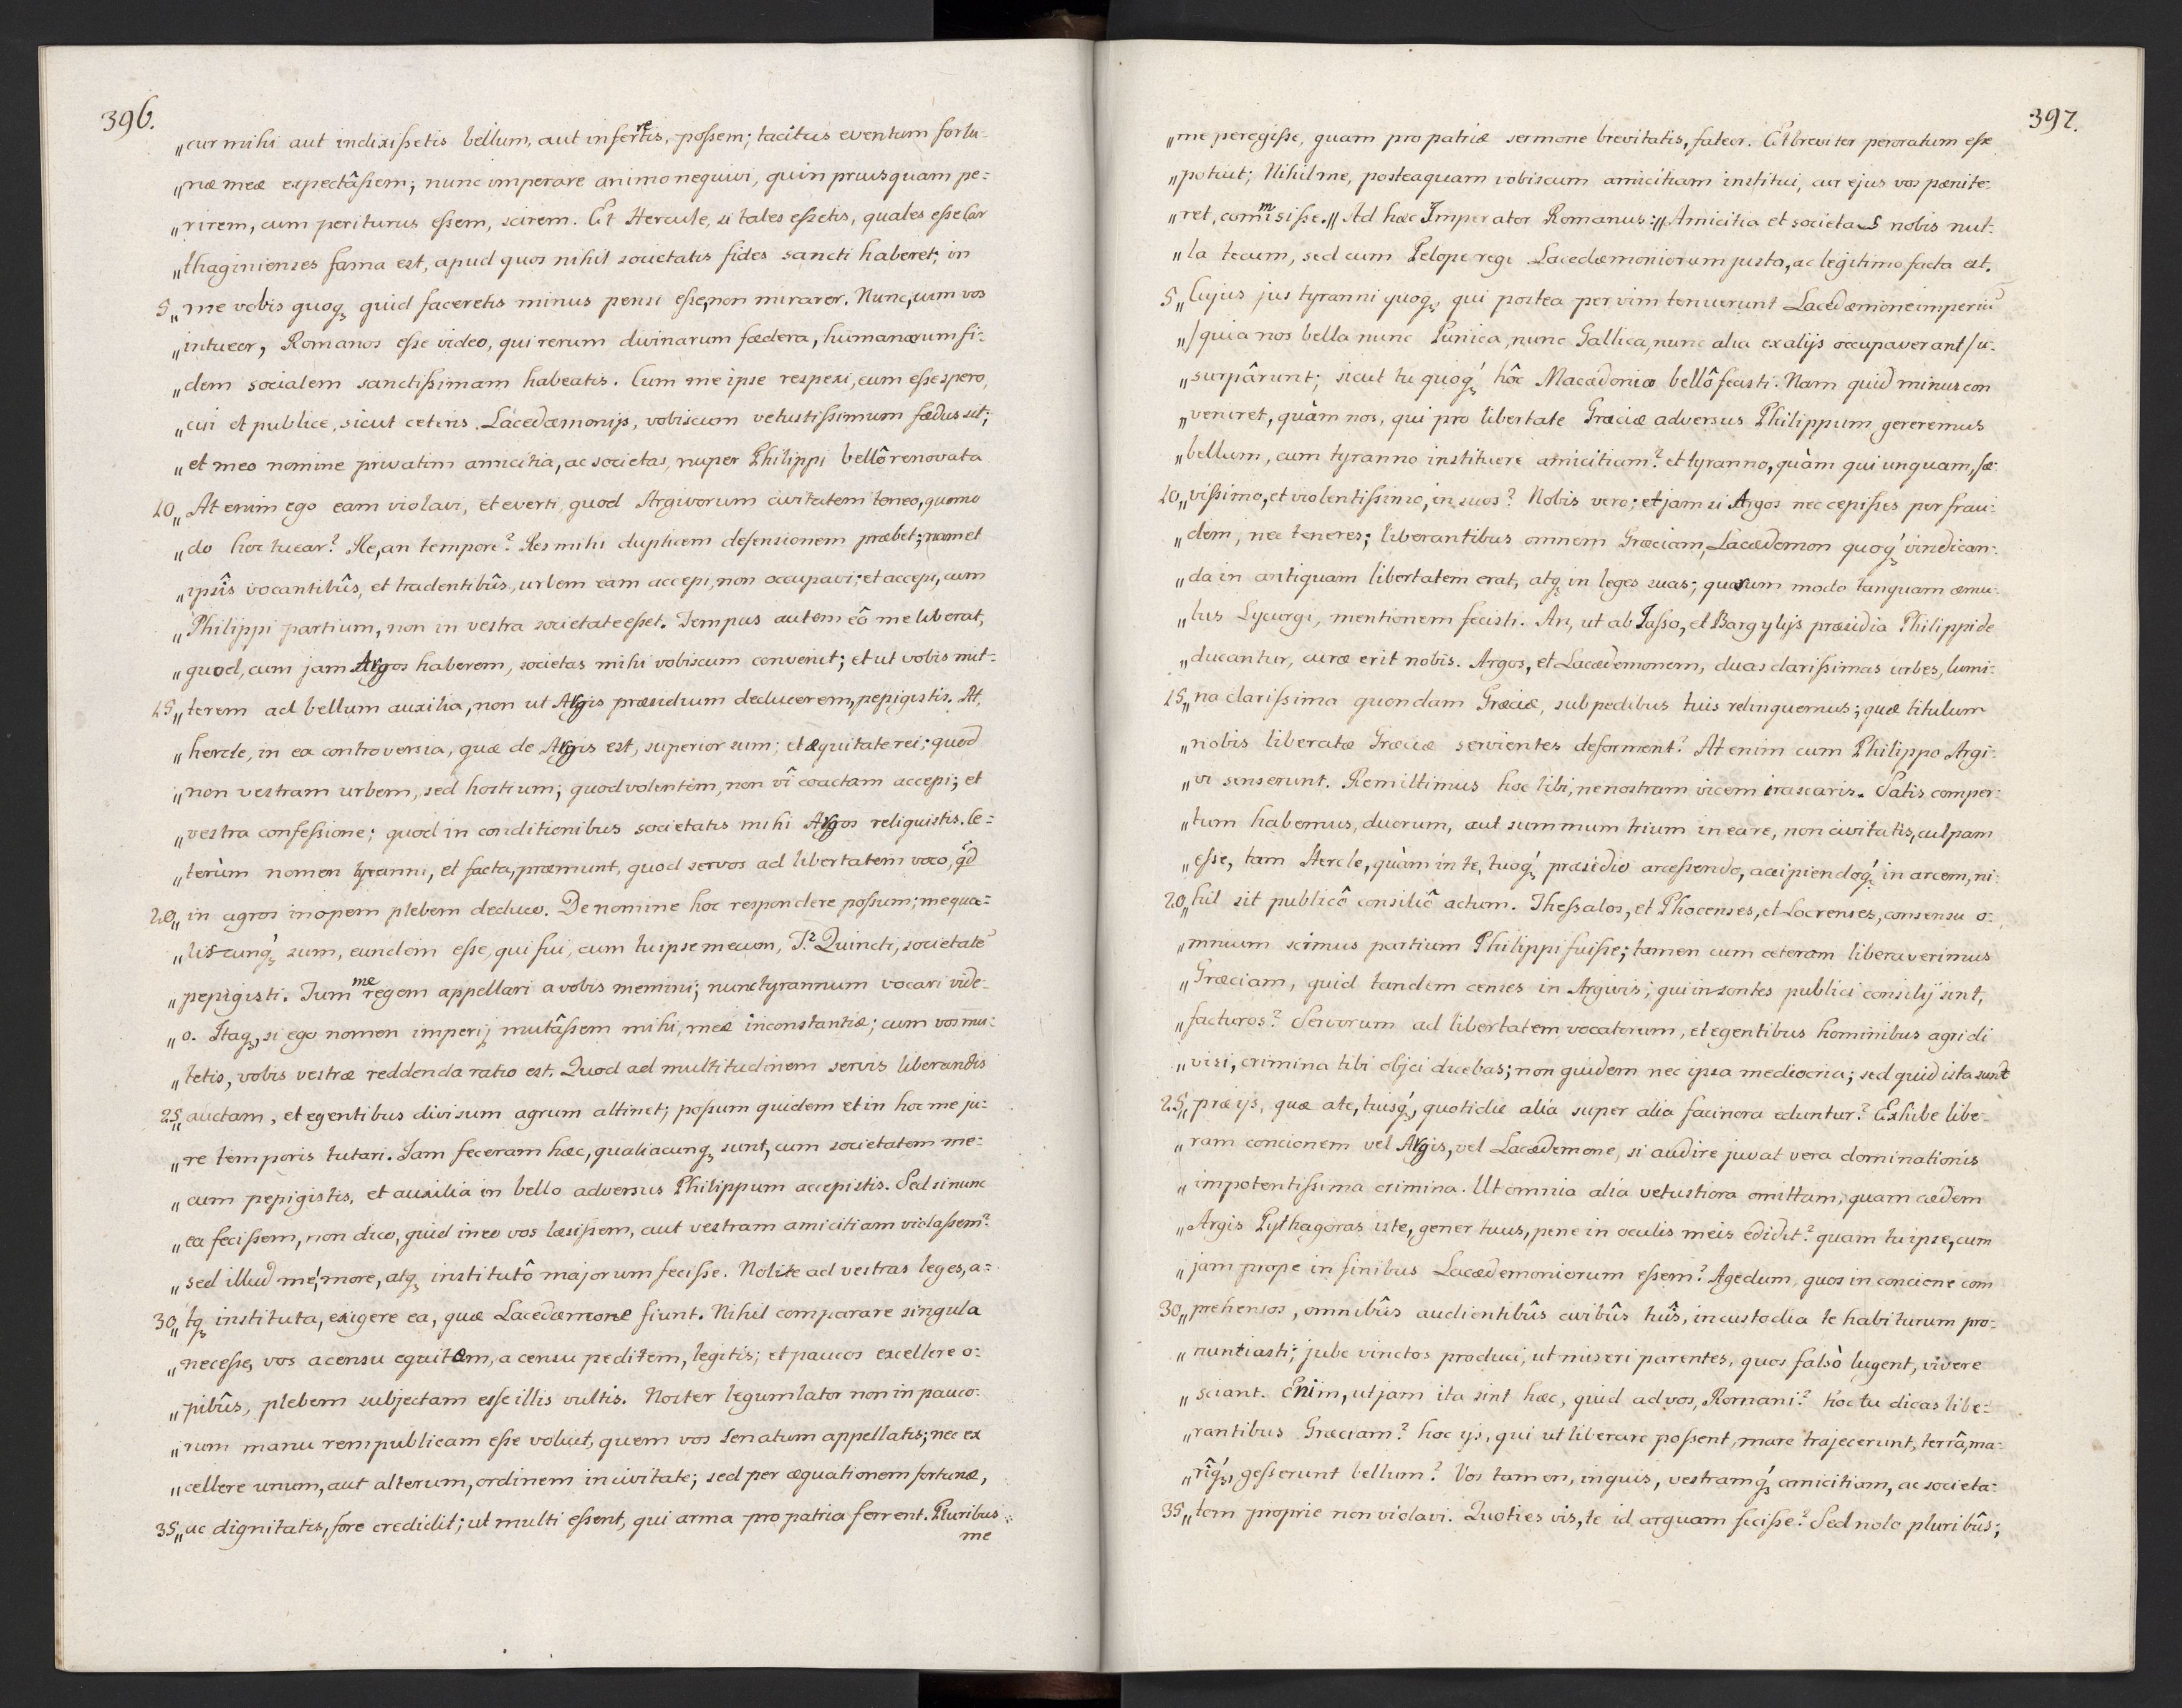 396.
„cur mihi aut indixissetis bellum, aut inferretis, possem; tacitus eventum fortu-
„næ meæ expectâssem; nunc imperare animo nequivi, quin priusquam pe=
„rirem, cum periturus essem, scirem. Et Hercule, si tales essetis, quales esse Car
„thaginienses fama est, apud quos nihil societatis fides sancti haberet; in
5„me vobis quoqꝫ quid faceretis minus pensi esse, non mirarer. Nunc, cum vos
„intueor, Romanos esse video, qui rerum divinarum fœdera, humanarum fi=
„dem socialem sanctissimam habeatis. Cum me ipse respexi, eum esse spero,
„cui et publice, sicut ceteris Lacedæmonijs, vobiscum vetustissimum fœdus sit;
„et meo nomine privatim amicitia, ac societas, nuper Philippi bellô renovata
10„At enim ego eam violavi, et everti, quod Argivorum civitatem teneo, quomo
„do hoc tuear? Re, an tempore? Res mihi duplicem defensionem præbet; nam et
„ipsîs vocantibûs, et tradentibûs, urbem eam accepi, non occupavi; et accepi, cum
„Philippi partium, non in vestra societate esset. Tempus autem eô me liberat,
„quod, cum jam Argos haberem, societas mihi vobiscum convenit; et ut vobis mit-
15„terem ad bellum auxilia, non ut Argis præsidium deducerem, pepigistis. At,
„hercle, in ea controversia, quæ de Argis est, superior sum; et æquitate rei; quod
„non vestram urbem, sed hostium; quod volentem, non vî coactam accepi; et
„vestra confessione; quod in conditionibus societatis mihi Argos reliquistis. Ce=
„terùm nomen tyranni, et facta, præmunt, quod servos ad libertatem voco, qd
20„in agros inopem plebem deduco. De nomine hoc respondere possum; me qua=
„liscunqꝫ sum, eundem esse, qui fui, cum tu ipse mecum, T. Quincti, societate
„pepigisti. Tum me regem appellari a vobis memini; nunc tyrannum vocari vide-
„o. Itaqꝫ, si ego nomen imperij mutâssem mihi, meæ inconstantiæ; cum vos mu-
„tetis, vobis vestræ reddenda ratio est. Quod ad multitudinem servis liberandis
25„auctam, et egentibus divisum agrum attinet; possum quidem et in hoc me ju=
„re temporis tutari. Jam feceram hæc, qualiacunqꝫ sunt, cum societatem me=
„cum pepigistis, et auxilia in bello adversus Philippum accepistis. Sed si nunc
„ea fecissem, non dico, quid in eo vos læsissem, aut vestram amicitiam violassem?
„sed illud me, more, atqꝫ institutô majorum fecisse. Nolite ad vestras leges, a=
30„tqꝫ instituta, exigere ea, quæ Lacedæmone fiunt. Nihil comparare singula
„necesse, vos a censu equitem, a censu peditem, legitis; et paucos excellere o=
„pibûs, plebem subjectam esse illis vultis. Noster legumlator non in pauco-
„rum manu rempublicam esse voluit, quem vos Senatum appellatis; nec ex
„cellere unum, aut alterum, ordinem in civitate; sed per æquationem fortunæ,
35„ac dignitatis, fore credidit; ut multi essent, qui arma pro patria ferrent. Pluribus
me
397.
„me peregisse, quam pro patriæ sermone brevitatis, fateor. Et breviter peroratum esse
„potuit; Nihil me, posteaquam vobiscum amicitiam institui, cur ejus vos pœnite-
„ret, commisisse.„ Ad hæc Imperator Romanus: „Amicitia et societas nobis nul-
„la tecum, sed cum Pelope rege Lacedæmoniorum justa, ac legitimo facta est.
5„Cujus jus tyranni quoqꝫ, qui postea per vim tenuerunt Lacedæmone imperiū
„/quia nos bella nunc Punica, nunc Gallica, nunc alia ex alijs occupaverant/ u-
„surpârunt; sicut tu quoqꝫ hôc Macedonico bellô fecisti. Nam quid minus con
„veniret, quàm nos, qui pro libertate Græciæ adversus Philippum gereremus
„bellum, cum tyranno instituere amicitiam? et tyranno, quàm qui unquam, sæ-
10„vissimo, et violentissimo, in suos? Nobis vero; etjam si Argos nec cepisses per frau-
„dem, nec teneres; liberantibus omnem Græciam, Lacædemon quoqꝫ vindican-
„da in antiquam libertatem erat, atqꝫ in leges suas; quarum modo tanquam æmu-
„lus Lycurgi, mentionem fecisti. An, ut ab Iasso, et Bargylijs præsidia Philippi de
„ducantur, curæ erit nobis. Argos, et Lacædemonem, duas clarissimas urbes, lumi-
15„na clarissima quondam Græciæ, sub pedibus tuis relinquemus; quæ titulum
„nobis liberatæ Græciæ servientes deforment? At enim cum Philippo Argi-
„vi senserunt. Remittimus hoc tibi, ne nostram vicem irascaris. Satis comper-
„tum habemus, duorum, aut summum trium in ea re, non civitatis, culpam
„esse, tam Hercle, quàm in te, tuoqꝫ præsidio arcessendo, accipiendoqꝫ in arcem, ni-
20„hil sit publicô consiliô actum. Thessalos, et Phocenses, et Locrenses, consensu o-
„mnium scimus partium Philippi fuisse; tamen cum ceteram liberaverimus
„Græciam, quid tandem censes in Argivis; qui insontes publici consilij sint,
„facturos? Servorum ad libertatem vocatorum, et egentibus hominibus agri di
„visi, crimina tibi objci dicebas; non quidem nec ipsa mediocria; sed quid ista sunt
25„præ ijs, quæ a te, tuisqꝫ, quotidie alia super alia facinora eduntur? Exhibe libe-
„ram concionem vel Argis, vel Lacædemone, si audire juvat vera dominationis
„impotentissima crimina. Ut omnia alia vetustiora omittam, quam cædem
„Argis Pythagoras iste, gener tuus, pene in oculis meis edidit? quam tu ipse, cum
„jam prope in finibus Lacædemoniorum essem? Agedum, quos in concione com
30„prehensos, omnibûs audientibûs civibûs tuîs, in custodia te habiturum pro-
„nuntiasti; jube vinctos produci, ut miseri parentes, quos falsò lugent, vivere
„sciant. Enim, ut jam ita sint hæc, quid ad vos, Romani? Hoc tu dicas libe-
„rantibus Græciam? hoc ijs, qui ut liberare possent, mare trajecerunt, terrâ, ma-
„rîqꝫ, gesserunt bellum? Vos tamen, inquis, vestramqꝫ amicitiam, ac societa-
35„tem proprie non violavi. Quoties vis, te id arguam fecisse? Sed nolo pluribûs;